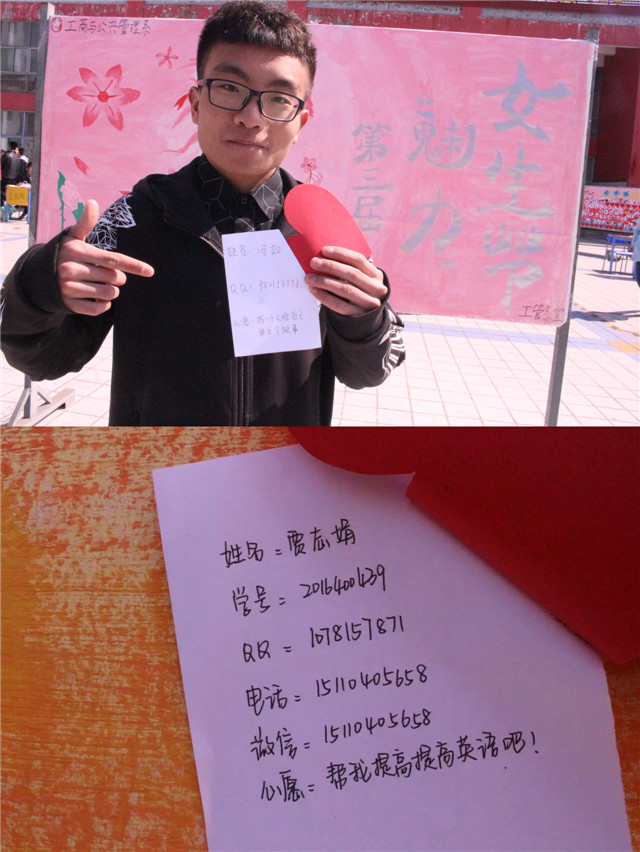 工商与公共管理系
女生节
魅力
第三届
工管系宣
姓名:
QQ:
心愿:找一个人给自己
讲三个故事
姓名=贾志娟
学号=2016400439
QQ=1078157871
电话=15110405658
微信=15110405658
心愿=帮我提高提高英语吧!